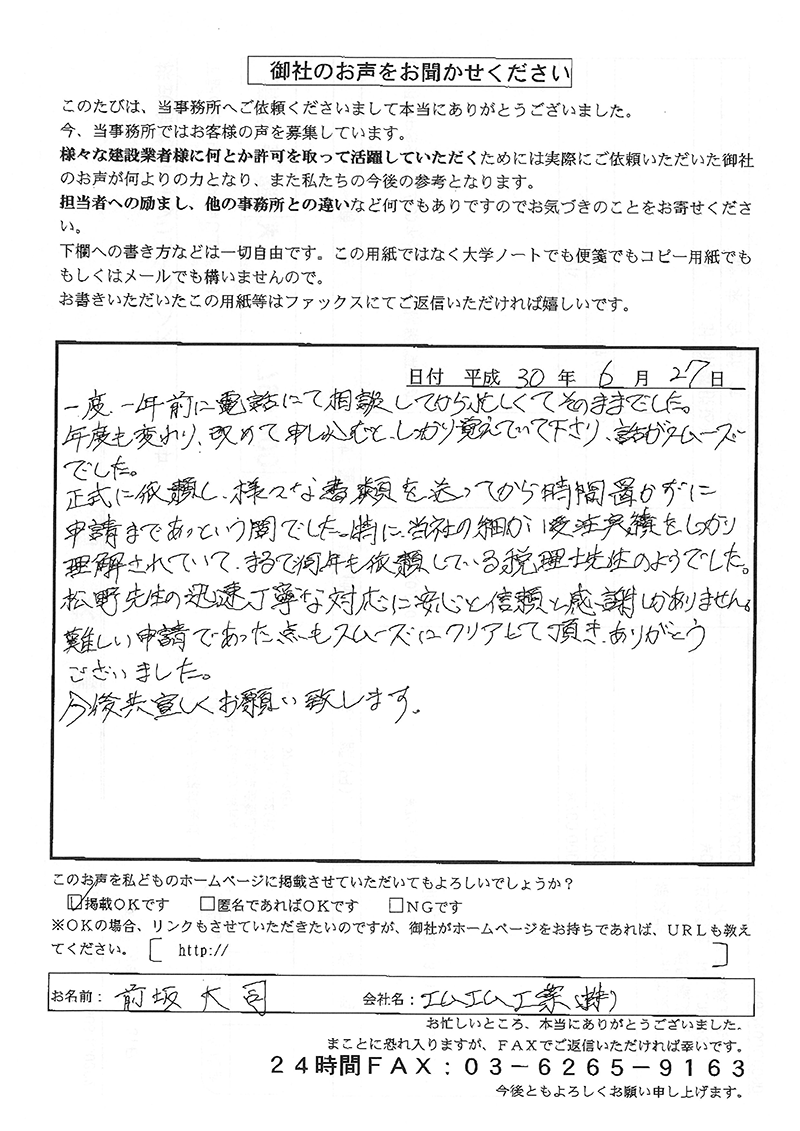 御社のお声をお聞かせください
このたびは、当事務所へご依頼くださいまして本当にありがとうございました。
今、当事務所ではお客様の声を募集しています。
様々な建設業者様に何とか許可を取って活躍していただくためには実際にご依頼いただいた御社
のお声が何よりの力となり、また私たちの今後の参考となります。
担当者への励まし、他の事務所との違いなど何でもありですのでお気づきのことをお寄せくださ
い。
下欄への書き方などは一切自由です。この用紙ではなく大学ノートでも便箋でもコピー用紙でも
もしくはメールでも構いませんので。
お書きいただいたこの用紙等はファックスにてご返信いただければ嬉しいです。
日付 平成 30 年 6 月 27 日
一度、一年前に電話にて相談してから忙しくてそのままでした。
年度も変わり、改めて申し込むと、しっかり覚えていて下さり、話がスムーズ
でした。
正式に依頼し、様々な書類を送ってから時間置かずに
申請まであっという間でした。特に、当社の細かい受注実績をしっかり
理解されていて、まるで何年も依頼している税理士先生のようでした。
松野先生の迅速丁寧な対応に安心と信頼と感謝しかありません。
難しい申請であった点もスムーズにクリアして頂き、ありがとう
ございました。
今後共宜しくお願い致します。
このお声を私どものホームページに掲載させていただいてもよろしいでしょうか？
☑掲載OKです □匿名であればOKです □NGです
※OKの場合、リンクもさせていただきたいのですが、御社がホームページをお持ちであれば、URLも教え
てください。〔 http:// 〕
お名前： 前坂 大司 会社名： エムエム工業(株)
お忙しいところ、本当にありがとうございました。
まことに恐れ入りますが、FAXでご返信いただければ幸いです。
24時間FAX：03－6265－9163
今後ともよろしくお願い申し上げます。